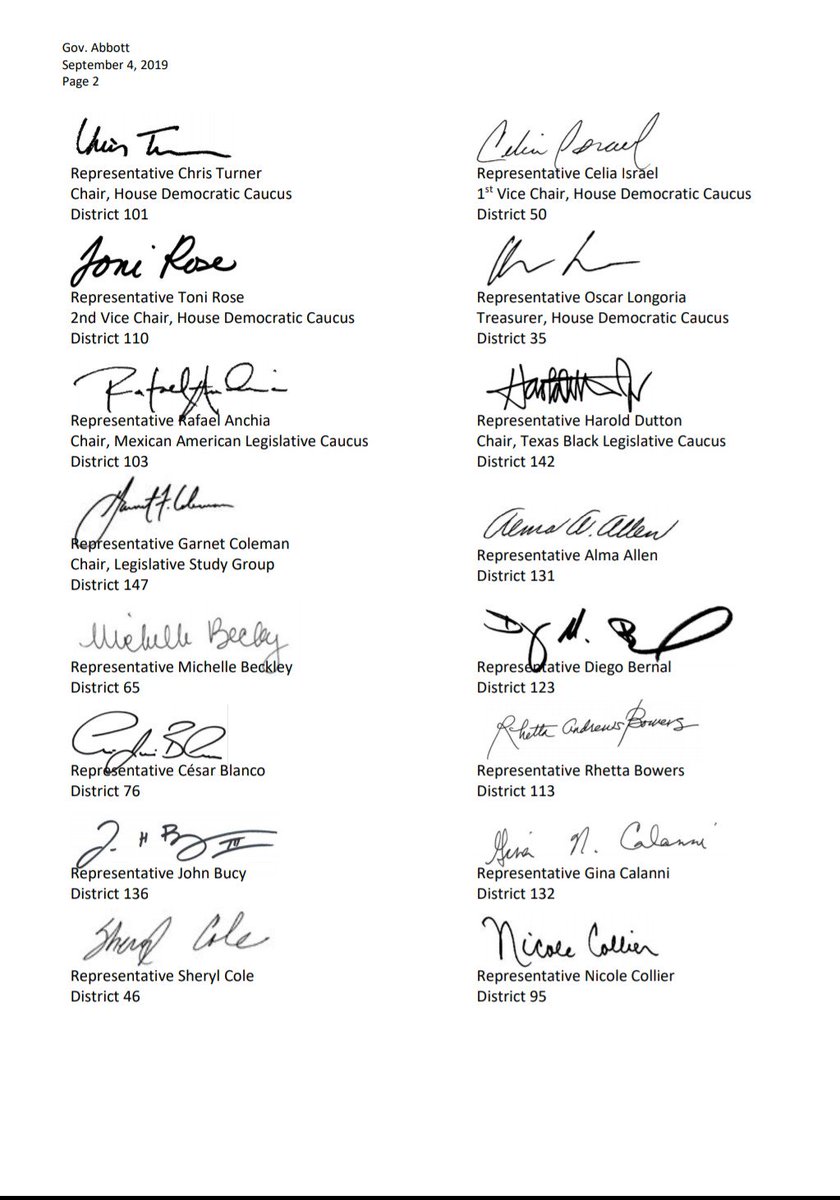 Gov. Abbott
September 4, 2019
Page 2
Chris T
Representative Chris Turner
Chair, House Democratic Caucus
District 101
Celia Israel
Representative Celia Israel
1st Vice Chair, House Democratic Caucus
District 50
Toni Rose
Representative Toni Rose
2nd Vice Chair, House Democratic Caucus
District 110
Representative Oscar Longoria
Treasurer, House Democratic Caucus
District 35
Rafael Anchia
Representative Rafael Anchia
Chair, Mexican American Legislative Caucus
District 103
Representative Harold Dutton
Chair, Texas Black Legislative Caucus
District 142
Garnet F. Coleman
Representative Garnet Coleman
Chair, Legislative Study Group
District 147
Alma A. Allen
Representative Alma Allen
District 131
Michelle Beckley
Representative Michelle Beckley
District 65
Representative Diego Bernal
District 123
Representative César Blanco
District 76
Rhetta Andrews Bowers
Representative Rhetta Bowers
District 113
Representative John Bucy
District 136
Gina N. Calanni
Representative Gina Calanni
District 132
Sheryl Cole
Representative Sheryl Cole
District 46
Nicole Collier
Representative Nicole Collier
District 95